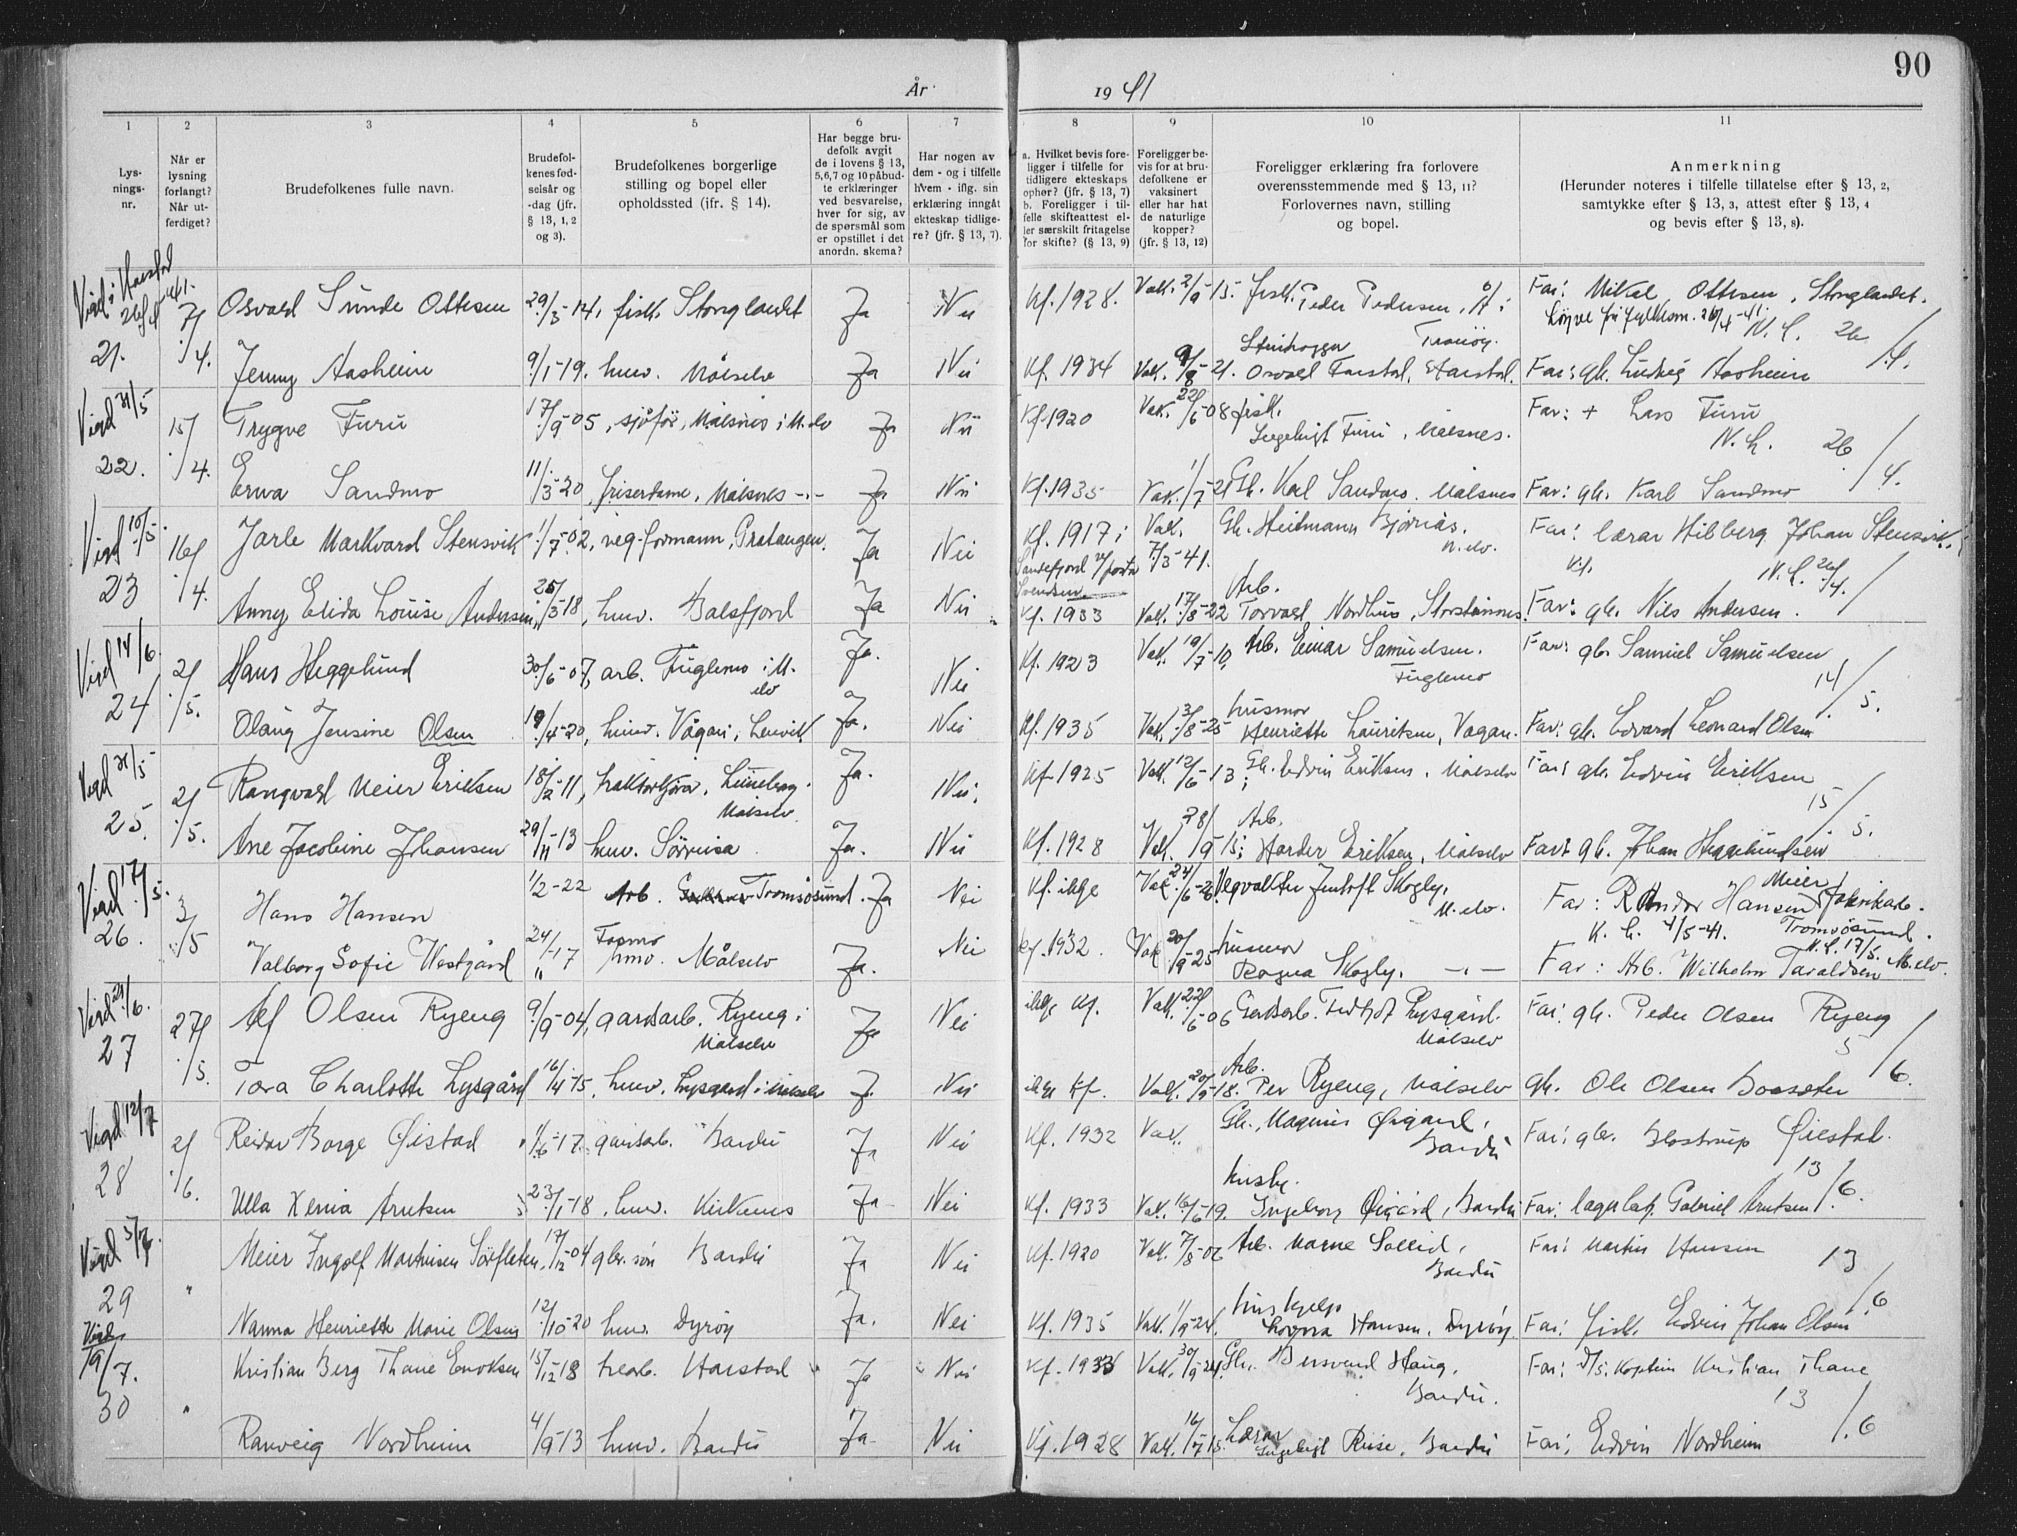 90
År 19 41
1 2 3 4 5 6 7 8 9 10 11
Lysningsnr.
Når er lysning forlangt? Når utferdiget?
Brudefolkenes fulle navn.
Brudefolkenes fødselsår og -dag (jfr. § 13, 1, 2 og 3).
Brudefolkenes borgerlige stilling og bopel eller opholdssted (jfr. § 14).
Har begge brudefolk avgit de i lovens § 13, 5,6,7 og 10 påbudte erklæringer ved besvarelse, hver for sig, av de spørsmål som er opstillet i det anordn. skema?
Har nogen av dem - og i tilfelle hvem - iflg. sin erklæring inngått ekteskap tidligere? (jfr. § 13, 7).
a. Hvilket bevis foreligger i tilfelle for tidligere ekteskaps ophør? (jfr. § 13, 7) b. Foreligger i tilfelle skifteattest eller særskilt fritagelse for skifte? (§ 13, 9)
Foreligger bevis for at brudefolkene er vaksinert eller har hat de naturlige kopper? (jfr. § 13, 12)
Foreligger erklæring fra forlovere overensstemmende med § 13, 11? Forlovernes navn, stilling og bopel.
Anmerkning (Herunder noteres i tilfelle tillatelse efter § 13, 2, samtykke efter § 13, 3, attest efter § 13, 4 og bevis efter § 13, 8).
Vigd i Harstad 26/4 -41.
21. 7/4. Osvald Sunde Ottesen 29/3-14, fisk. Storglandet Ja Nei Kf. 1928. Vak. 2/9-15. fisk. Peder Pedersen, Å i Tranöy. Far: Mikal Ottesen, Storglandet.
N. L. 26/4.
Jenny Aasheim 9/1-19, husv. Målselv Ja Nei Kf. 1934 Vak. 9/8-21. Osvald Farstad, Harstad. Far: gb. Ludvig Aasheim
Vigd 31/5
22. 15/4. Trygve Furu 17/9-05, sjåför, Målsnes i M.elv Ja Nei Kf. 1920 Vak. 22/6-08 fisk. Ingebrigt Furu, Målsnes. Far: + Lars Furu
N. L. 26/4.
Erna Sandmo 11/3-20, friserdame, Målsnes -"- Ja Nei Kf. 1935 Vak. 1/7-21 Gb. Karl Sandmo. Målsnes Far: gb. Karl Sandmo
Vigd 10/5.
23 16/4. Jarle Markvard Stensvik 1/7-02, veg-formann, Gratangen. Ja Nei Kf. 1917 i Sandefjord Vak. 7/3-41. Gb. Heitmann Bjørnås. M.elv. Far: lærar Hilberg Johan Stensvik.
N. L. 26/4.
Anny Elida Louise Andersen, 25/3-18, husv. Balsfjord Ja Nei Kf. 1933 Vak. 17/8-22 Arb. Torvald Nordhus, Storsteinnes. Far: gb. Nils Andersen.
Vigd 14/6.
24 2/5. Hans Heggelund 30/6-07, arb. Fuglemo i M.elv Ja. Nei Kf. 1923 Vak. 19/7-10, Arb. Einar Samuelsen. Fuglemo Far: gb. Samuel Samuelsen
14/5.
Olaug Jensine Olsen 19/4-20, husv. Vågan, Lenvik Ja. Nei Kf. 1935 Vak. 3/8-25 husmor Henriette Lauritsen, Vagan. Far: gb. Edvard Leonard Olsen
Vigd 31/5
25. 2/5. Rangvald Meier Eriksen 18/2-11, traktorkjörar, Målselv Ja. Nei. Kf. 1925 Vak. 12/6-13; Gb. Edvin Eriksen, Målselv Far: gb. Edvin Eriksen
15/5.
Ane Jacobine Johansen 29/11-13 husv. Sörreisa Ja. Nei Kf. 1928 Vak. 28/9-15; Arb. Harder Eriksen, Målselv Far: gb. Johan Heggelundsen
Vigd 17/5.
26. 3/5 Hans Hansen 1/2-22 Arb. Tromsösund. Ja Nei Kf. ikkje Vak. 24/6-26 Vegvakter Jentoft Skogly. M.elv. Far: Hansen Tromsösund.
K. L. 4/5-41. N. L. 17/5.
Valborg Sofie Westgård 24/11-17 Fagmo hmv. Målselv Ja. Nei Kf. 1932. Vak 20/9-25 husmor Ragna Skogly. -"- Far: Arb. Wilhelm Taraldsen M.elv.
Vigd 24/6.
27 27/5. Alf Olsen Ryeng 9/9-04, gardsarb. Ryeng i Målselv Ja Nei ikkje kf. Vak. 22/6-06 Gardsarb. Lysgård. Målselv Far: gb. Peder Olsen Ryeng
5/6.
Tora Charlotte Lysgård 16/4-15, husv. Lysgard i Målselv Ja. Nei ikkje kf. Vak. 20/9-18. Arb. Per Ryeng, Målselv gb. Ole Olsen
Vigd 12/7
28 2/6. Reidar Borge Öistad 1/6-17. gardsarb. Bardu Ja Nei Kf. 1932 Vak. Gb. Magnus Öigard, Bardu Far: gbr. Öistad.
13/6.
Ulla Xenia Arntsen 23/1-18, husv. Kirkenes Ja Nei Kf. 1933 Vak. 16/6-19. Ingeborg Öigård, Bardu Far: Gabriel Arntsen
Vigd 5/7.
29 " Meier Ingolf Martinsen Sörfleten, 17/12-04 gbr. sön Bardu Ja Nei Kf. 1920 Vak. 7/8-06 Arb. Marne Sollid, Bardu Far: Martin Hansen
13/6
Nanna Henriette Marie Olsen 12/10-20 husv. Dyröy Ja. Nei Kf. 1935 Vak. 1/9-24. hushjelp Hansen, Dyröy. Far: fisk. Edvin Johan Olsen
Vigd 19/7.
30 " Kristian Berg Thane Enoksen 15/12-18 Harstad Ja Nei Kf. 1933 Vak. 30/9-24. Gb. Bersvend Haug, Bardu. Far: d/s. kaptein Kristian Thane
13/6
Ranveig Nordheim 4/9-13 husv. Bardu Ja Nei Kf. 1928 Vak. 16/7-15. Lærar Ingebrigt Riise, Bardu Far: Edvin Nordheim